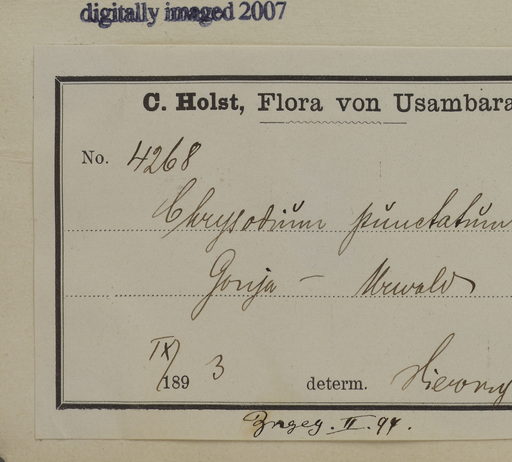 digitally imaged 2007
C. Holst, Flora von Usambara
No. 4268
Chrysodium punctatum
Gonja – Urwald
IX/1893 determ. Hierony
II. 94.